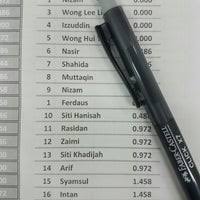 Nizam 0.000
3 Wong Lee L 0.000
4 Izzuddin 0.000
5 Wong Hui 0.000
6 Nasir
7 Shahida
8 Muttaqin
9 Nizam
1 Ferdaus
10 Siti Hanisah 0.486
11 Rasidan 0.972
12 Zaimi 0.972
13 Siti Khadijah 0.972
14 Arif 0.972
15 Syamsul 1.458
16 Intan 1.458
FABER-CASTELL
CLICK X7